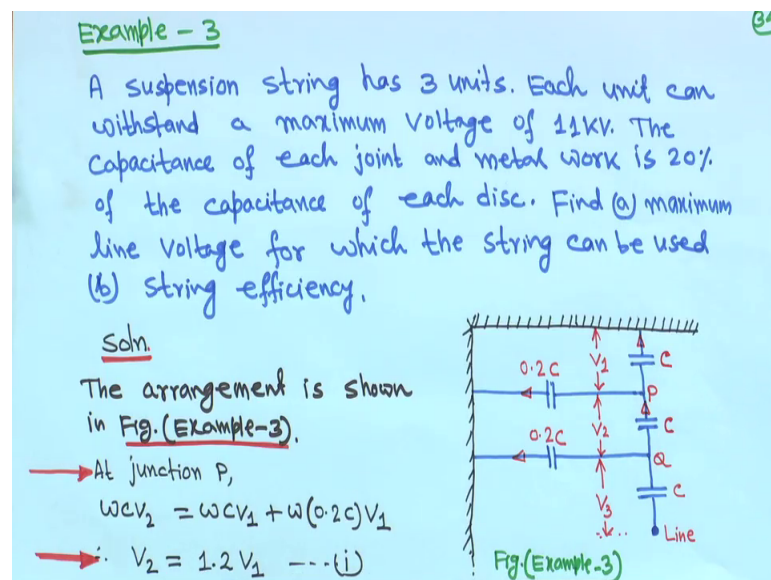 Example - 3
A suspension string has 3 units. Each unit can
withstand a maximum voltage of 11KV. The
capacitance of each joint and metal work is 20%
of the capacitance of each disc. Find (a) maximum
line voltage for which the string can be used
(b) string efficiency.
Soln.
The arrangement is shown
in Fig.(Example-3).
At junction P,
ωCV₂ = ωCV₁ + ω(0.2C)V₁
∴ V₂ = 1.2 V₁ ---- (i)
V₁
C
0.2C
P
V₂
C
0.2C
Q
V₃
C
Line
Fig.(Example-3)